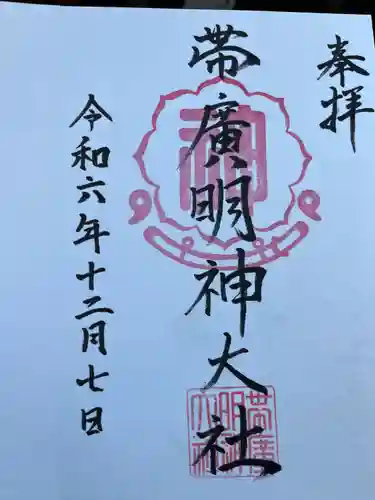 奉拝
帯廣明神大社
令和六年十二月七日
帯廣
明神
大社